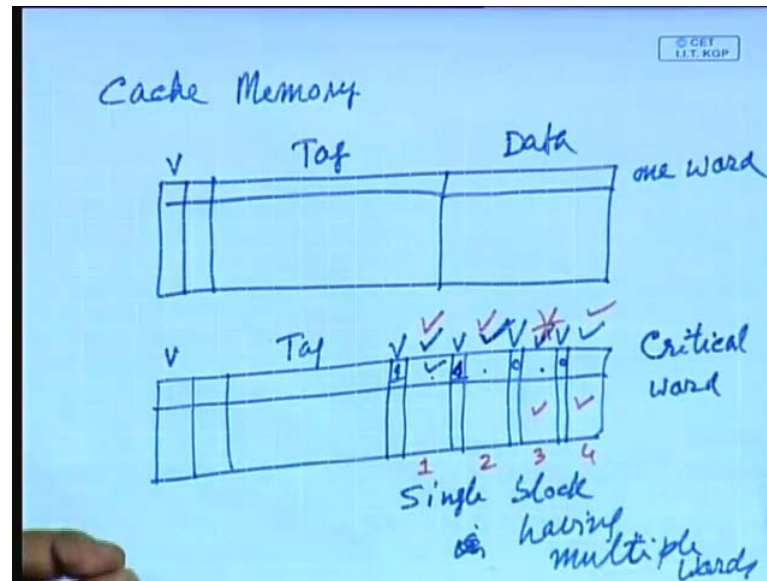 © CET
I.I.T. KGP
Cache Memory
V Tag Data one word
V Tag V V V V Critical
word
1 1 0 0
1 2 3 4
Single block
having
multiple
words